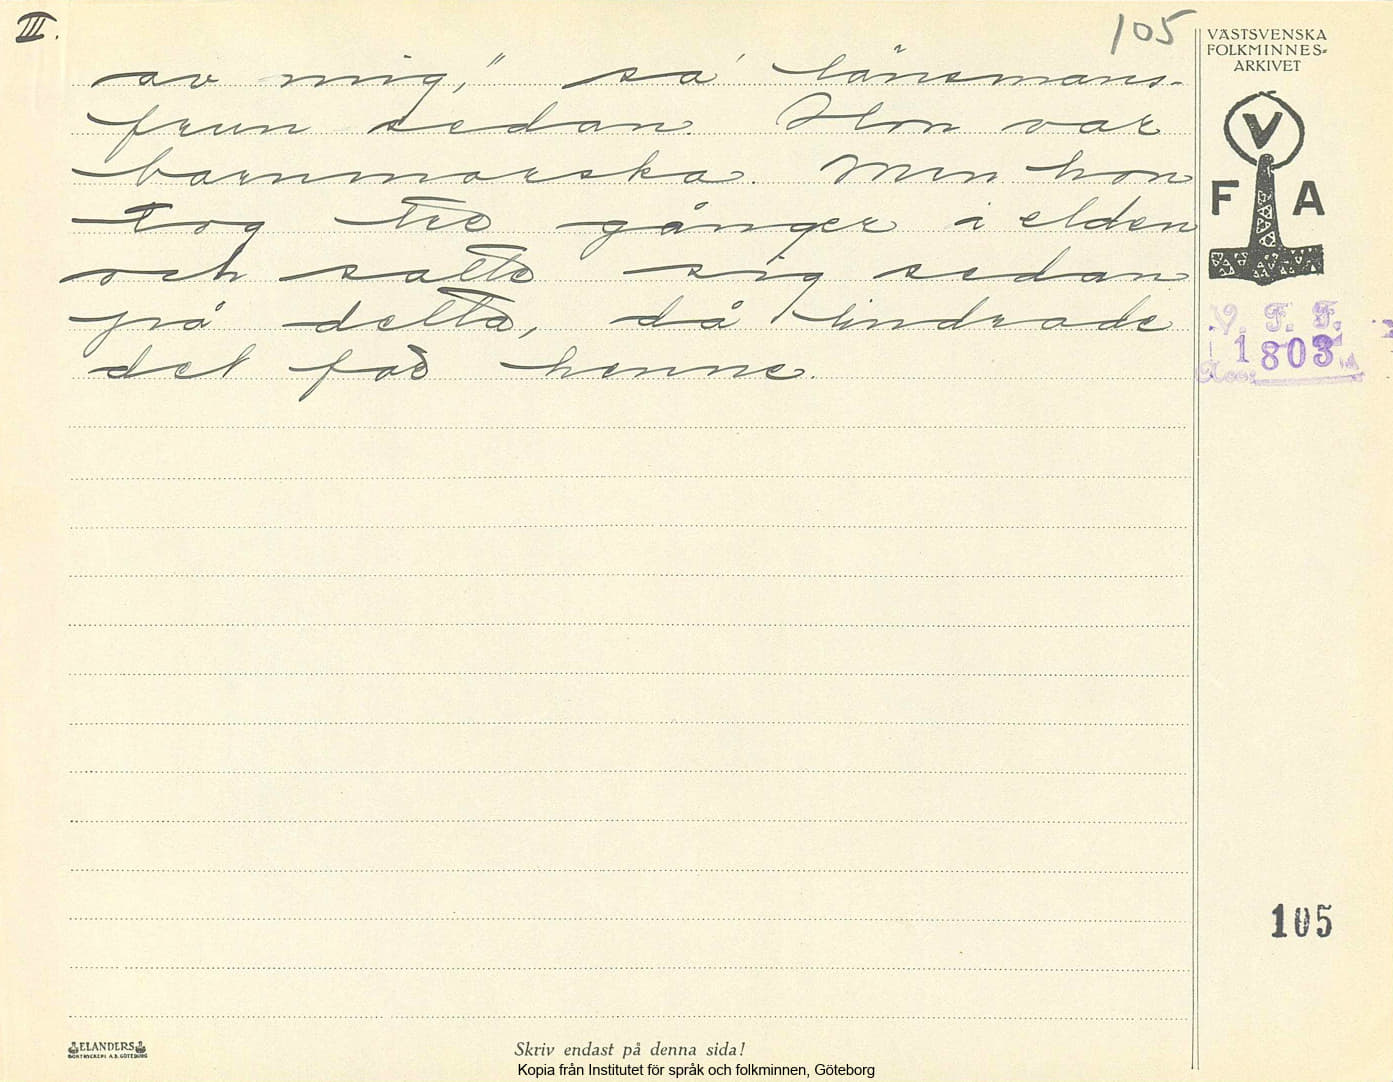 III.
105
VÄSTSVENSKA
FOLKMINNES-
ARKIVET
V
F A
av mig," sa' länsmans-
frun sedan. Hon var
barnmorska. Men hon
tog tre gånger i elden
och satte sig sedan
på detta, då lindrade
det för henne.
V. F. F.
1803
105
ELANDERS
BOKTRYCKERI A.B. GÖTEBORG
Skriv endast på denna sida!
Kopia från Institutet för språk och folkminnen, Göteborg